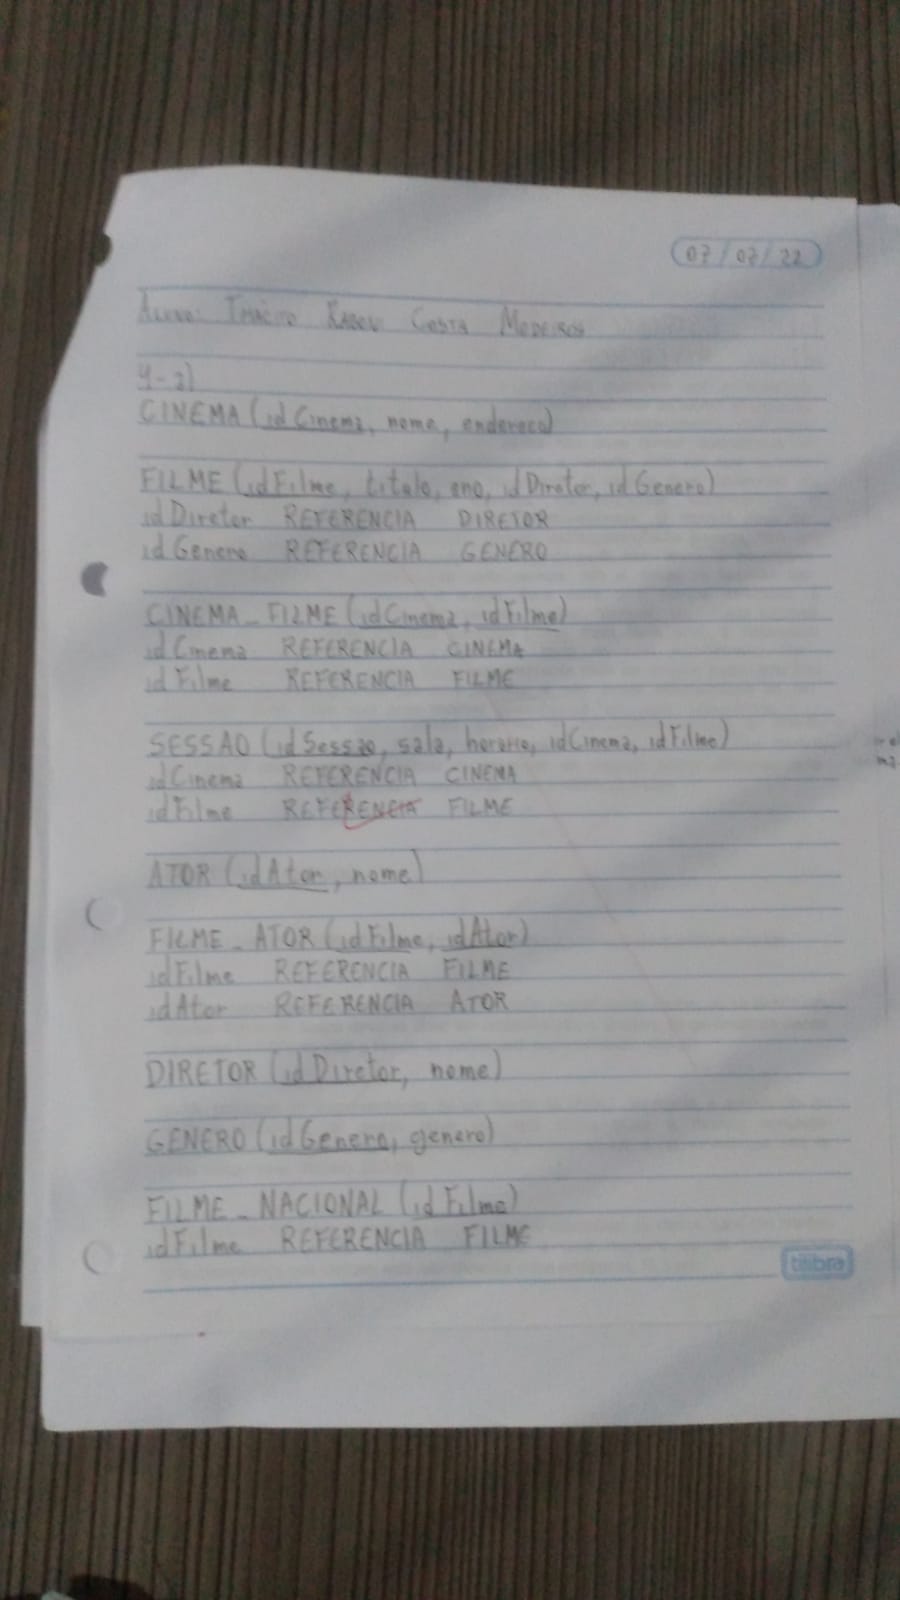 07/07/22
Aluno: Costa Medeiros
4-a)
CINEMA (idCinema, nome, endereco)
FILME (idFilme, titulo, ano, idDiretor, idGenero)
idDiretor REFERENCIA DIRETOR
idGenero REFERENCIA GENERO
CINEMA_FILME (idCinema, idFilme)
idCinema REFERENCIA CINEMA
idFilme REFERENCIA FILME
SESSAO (idSessao, sala, horario, idCinema, idFilme)
idCinema REFERENCIA CINEMA
idFilme REFERENCIA FILME
ATOR (idAtor, nome)
FILME_ATOR (idFilme, idAtor)
idFilme REFERENCIA FILME
idAtor REFERENCIA ATOR
DIRETOR (idDiretor, nome)
GENERO (idGenero, genero)
FILME_NACIONAL (idFilme)
idFilme REFERENCIA FILME
tilibra